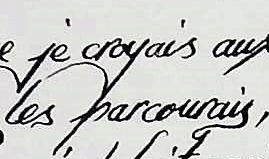 e je croyais aux
les parcourais,